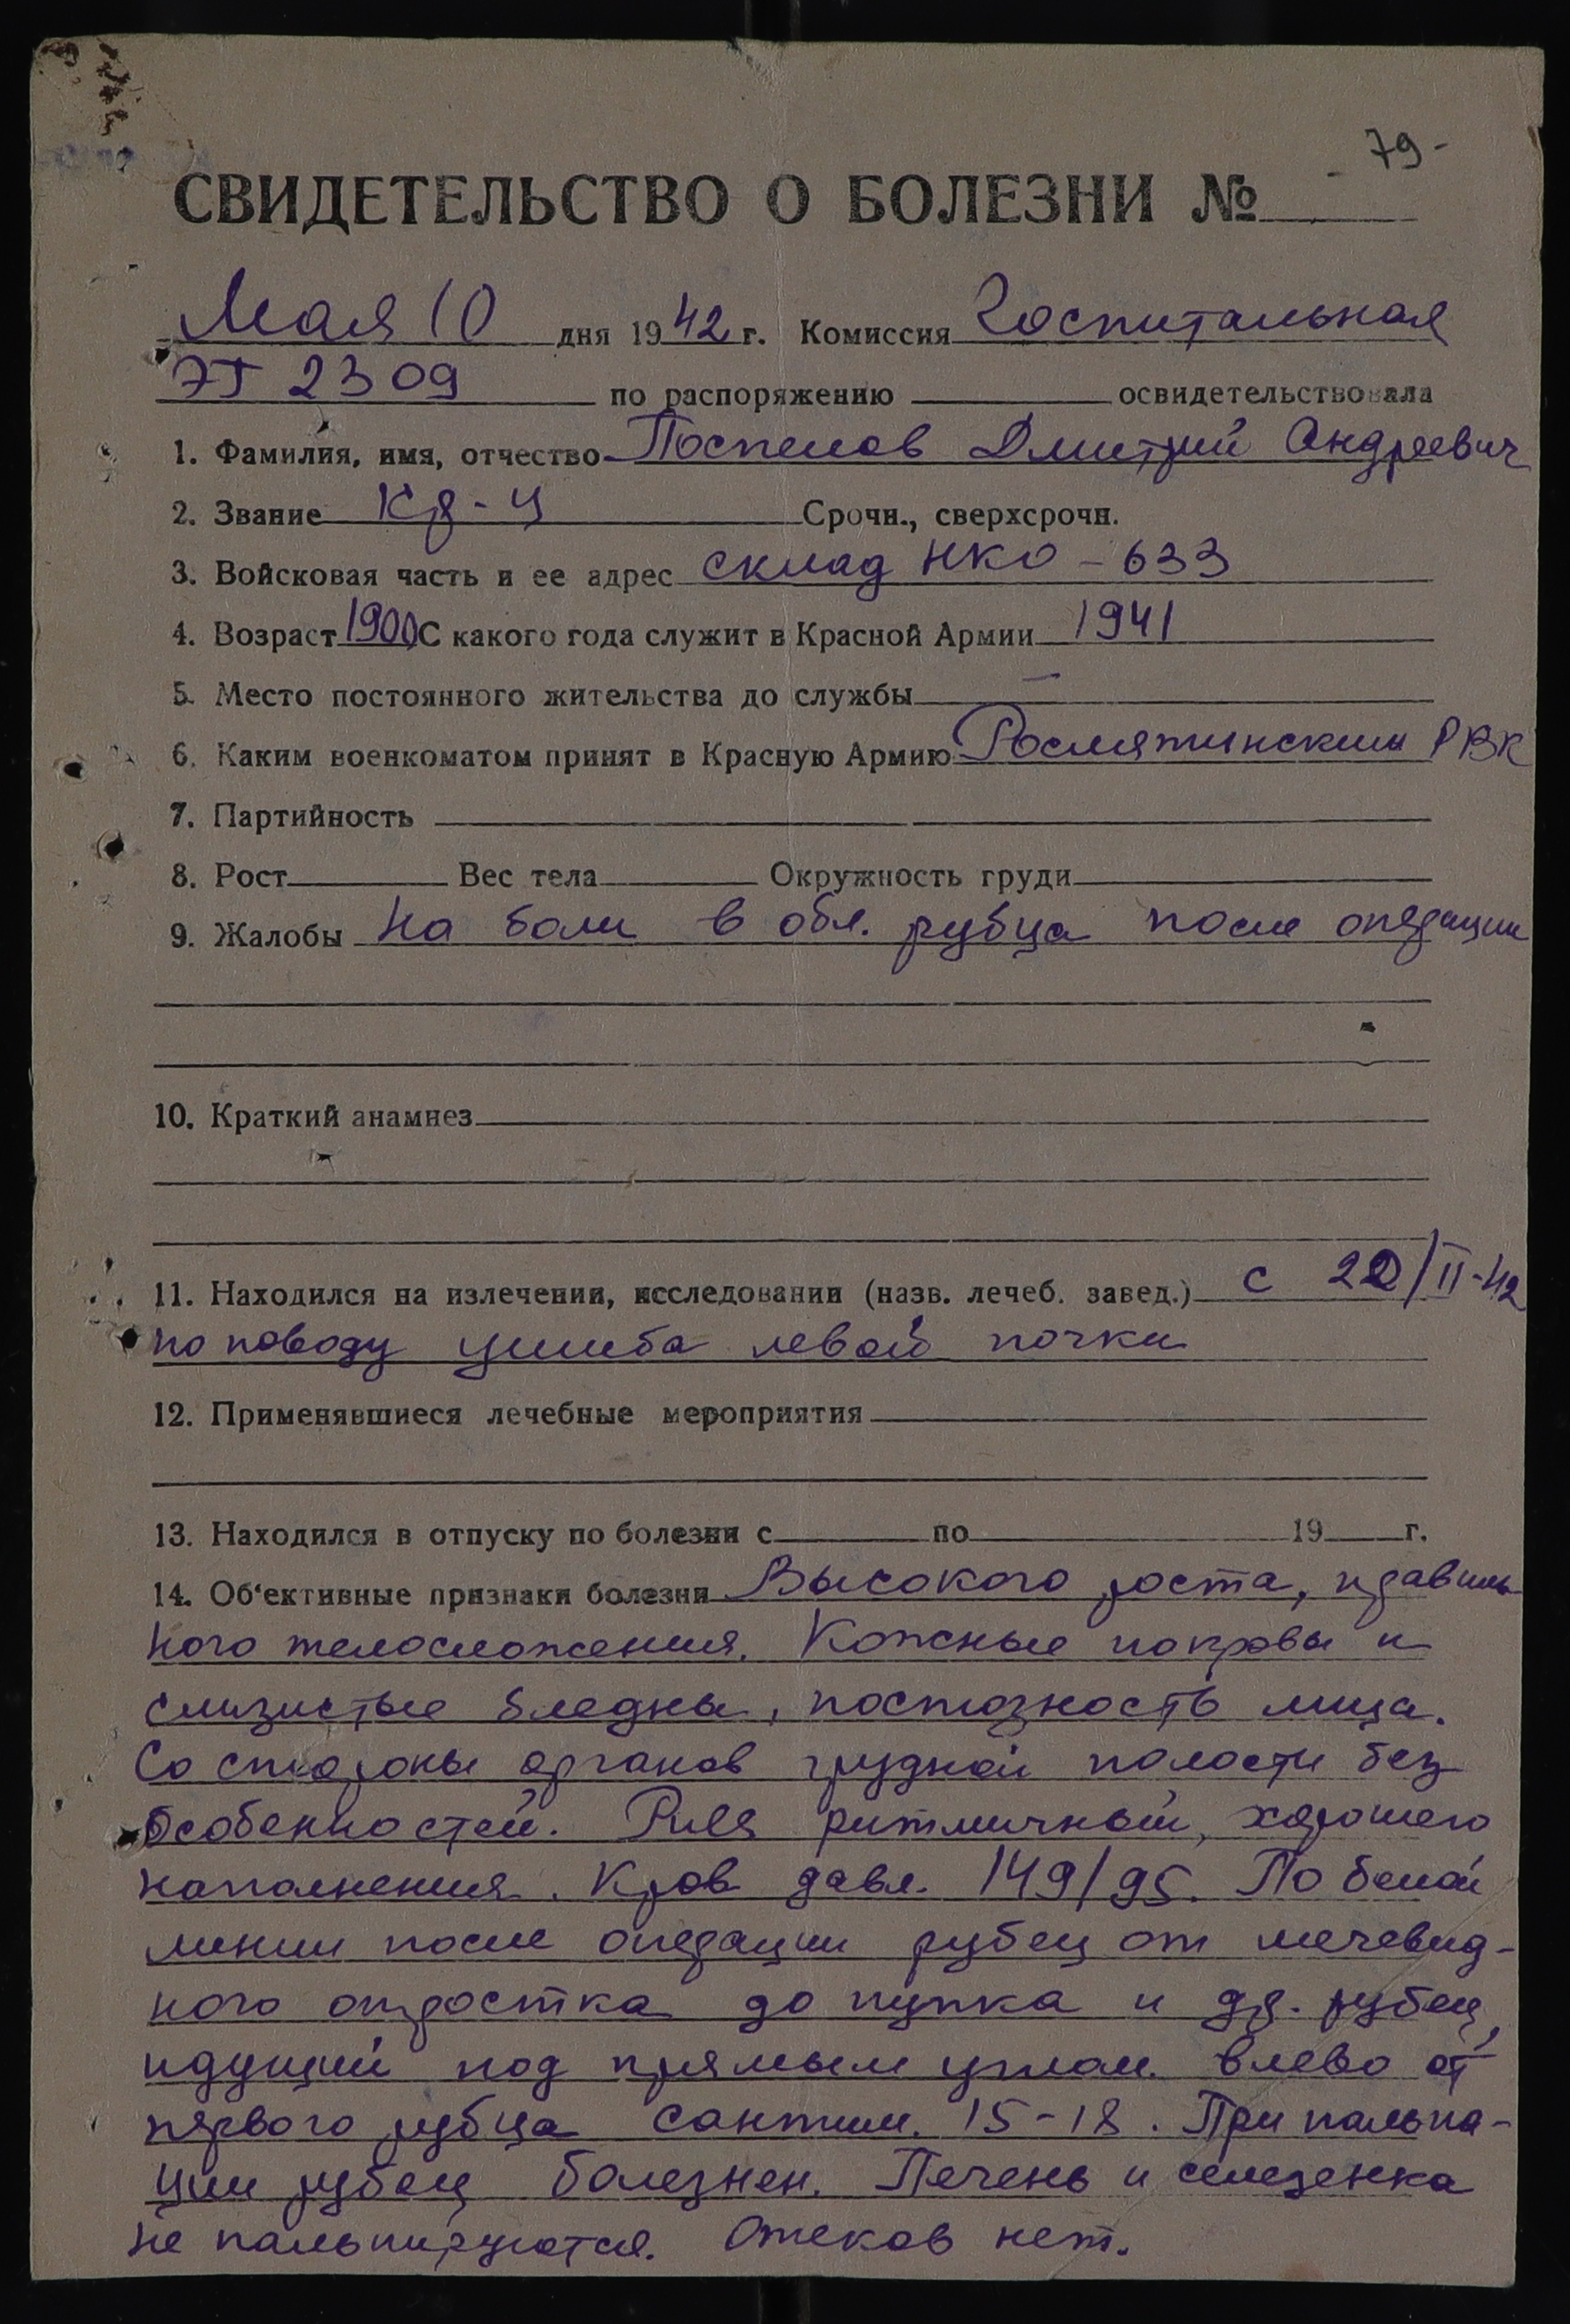 79-
СВИДЕТЕЛЬСТВО О БОЛЕЗНИ №
Мая 10 дня 1942 г. Комиссия Госпитальная
ЭГ 2309 по распоряжению освидетельствовала
1. Фамилия, имя, отчество Поспелов Дмитрий Андреевич
2. Звание Кр-ц Срочн., сверхсрочн.
3. Войсковая часть и ее адрес склад НКО - 633
4. Возраст 1900 С какого года служит в Красной Армии 1941
5. Место постоянного жительства до службы —
6. Каким военкоматом принят в Красную Армию Рослятинским РВК
7. Партийность
8. Рост Вес тела Окружность груди
9. Жалобы На боли в обл. рубца после операции
10. Краткий анамнез
11. Находился на излечении, исследовании (назв. лечеб. завед.) с 22/II-42
по поводу ушиба левой почки
12. Применявшиеся лечебные мероприятия
13. Находился в отпуску по болезни с по 19 г.
14. Об‘ективные признаки болезни Высокого роста, правиль-
ного телосложения. Кожные покровы и
слизистые бледны, постозность лица.
Со стороны органов грудной полости без
особенностей. Puls ритмичный, хорошего
наполнения. Кров давл. 149/95. По белой
линии после операции рубец от мечевид-
ного отростка до пупка и др. рубец,
идущий под прямым углом влево от
первого рубца сантим. 15-18. При пальпа-
ции рубец болезнен. Печень и селезенка
не пальпируются. Отеков нет.